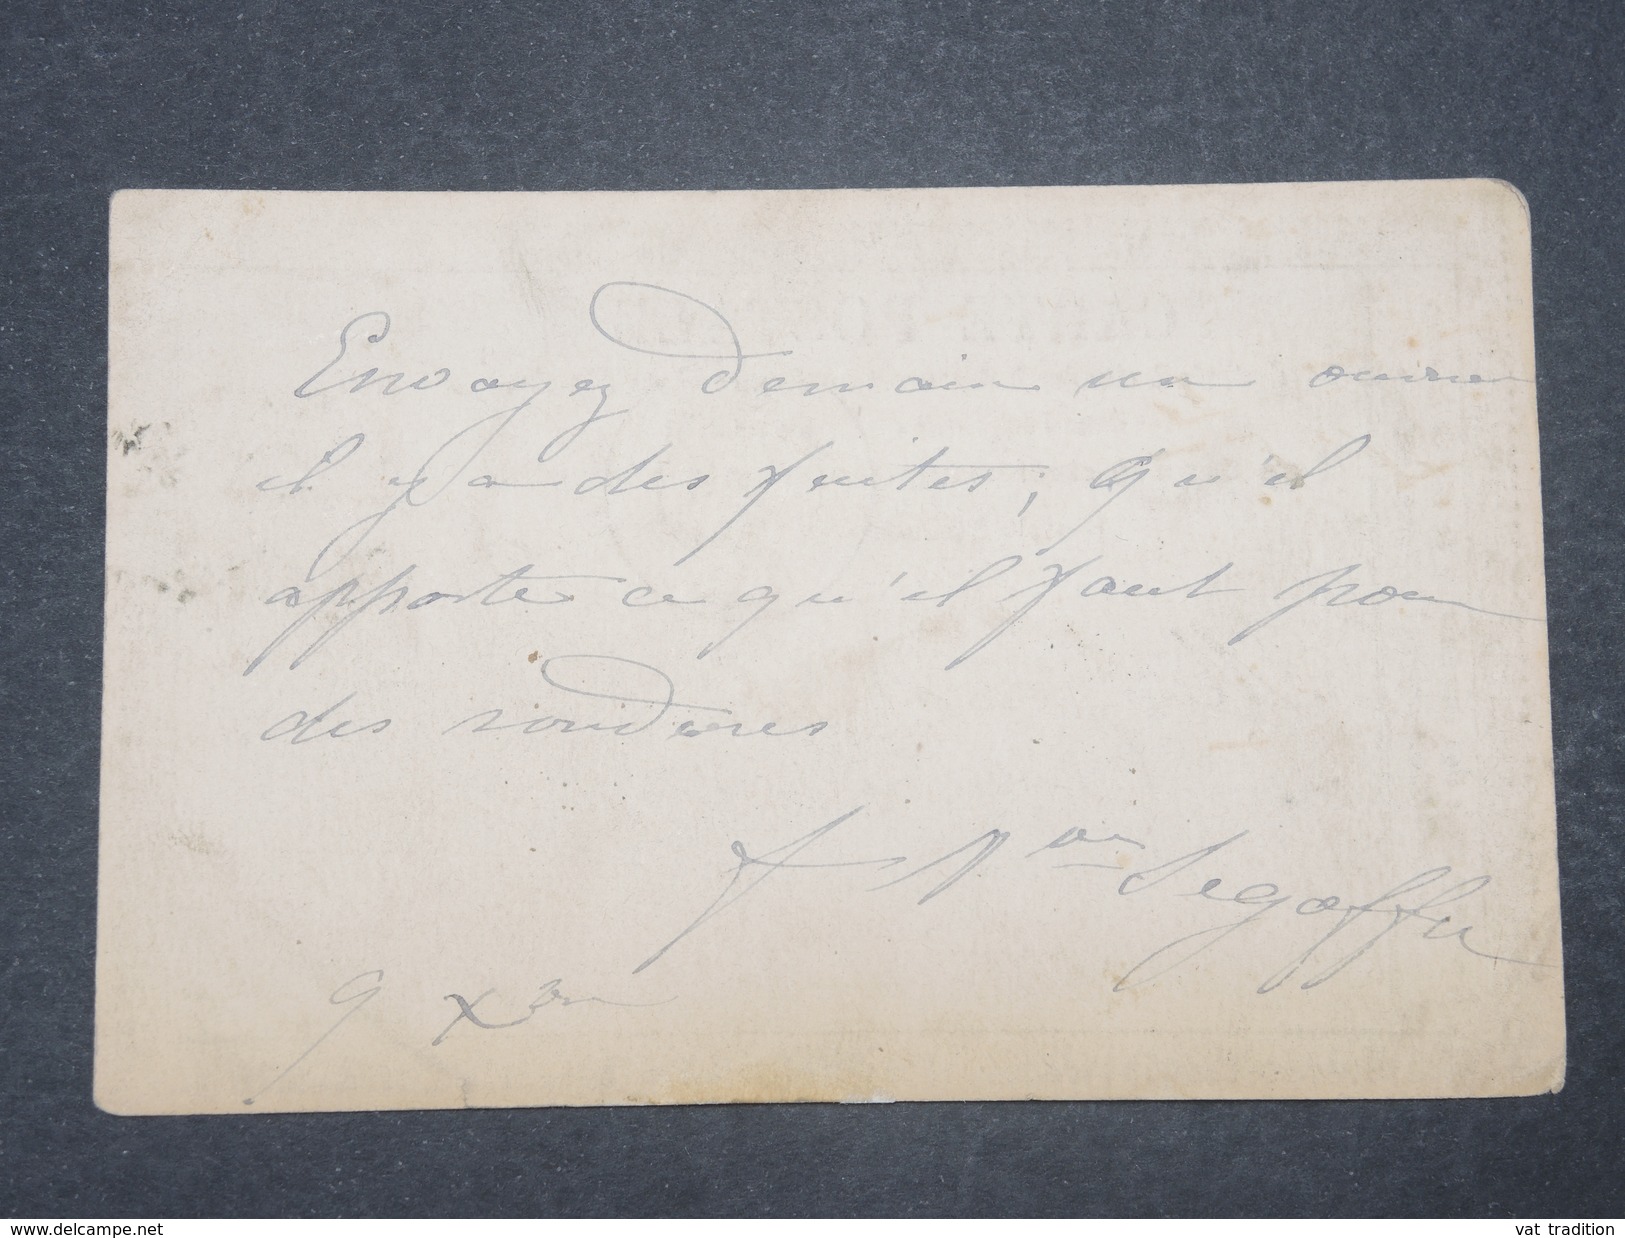 Envoyez demain un ouvrier
il y a des fuites, qu'il
apporte ce qu'il faut pour
des soudures
Segoffin
9 Xbre
www.delcampe.net
vat tradition